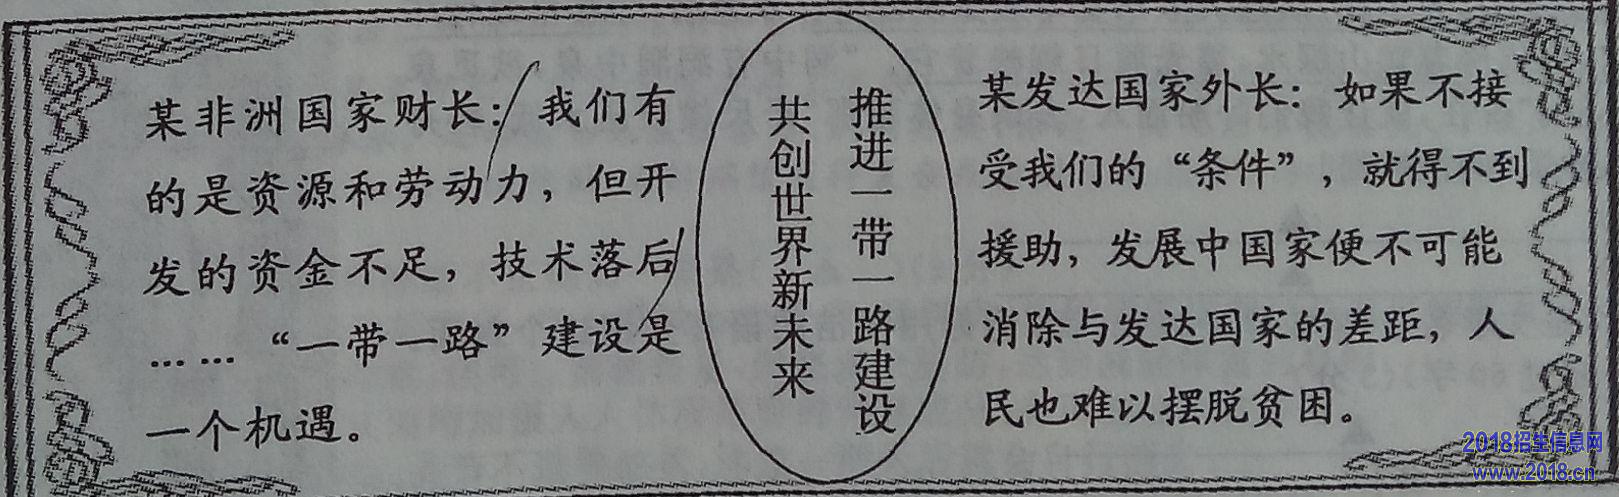 某非洲国家财长：我们有
的是资源和劳动力，但开
发的资金不足，技术落后
……“一带一路”建设是
一个机遇。
推进一带一路建设
共创世界新未来
某发达国家外长：如果不接
受我们的“条件”，就得不到
援助，发展中国家便不可能
消除与发达国家的差距，人
民也难以摆脱贫困。
2018招生信息网
www.2018.cn